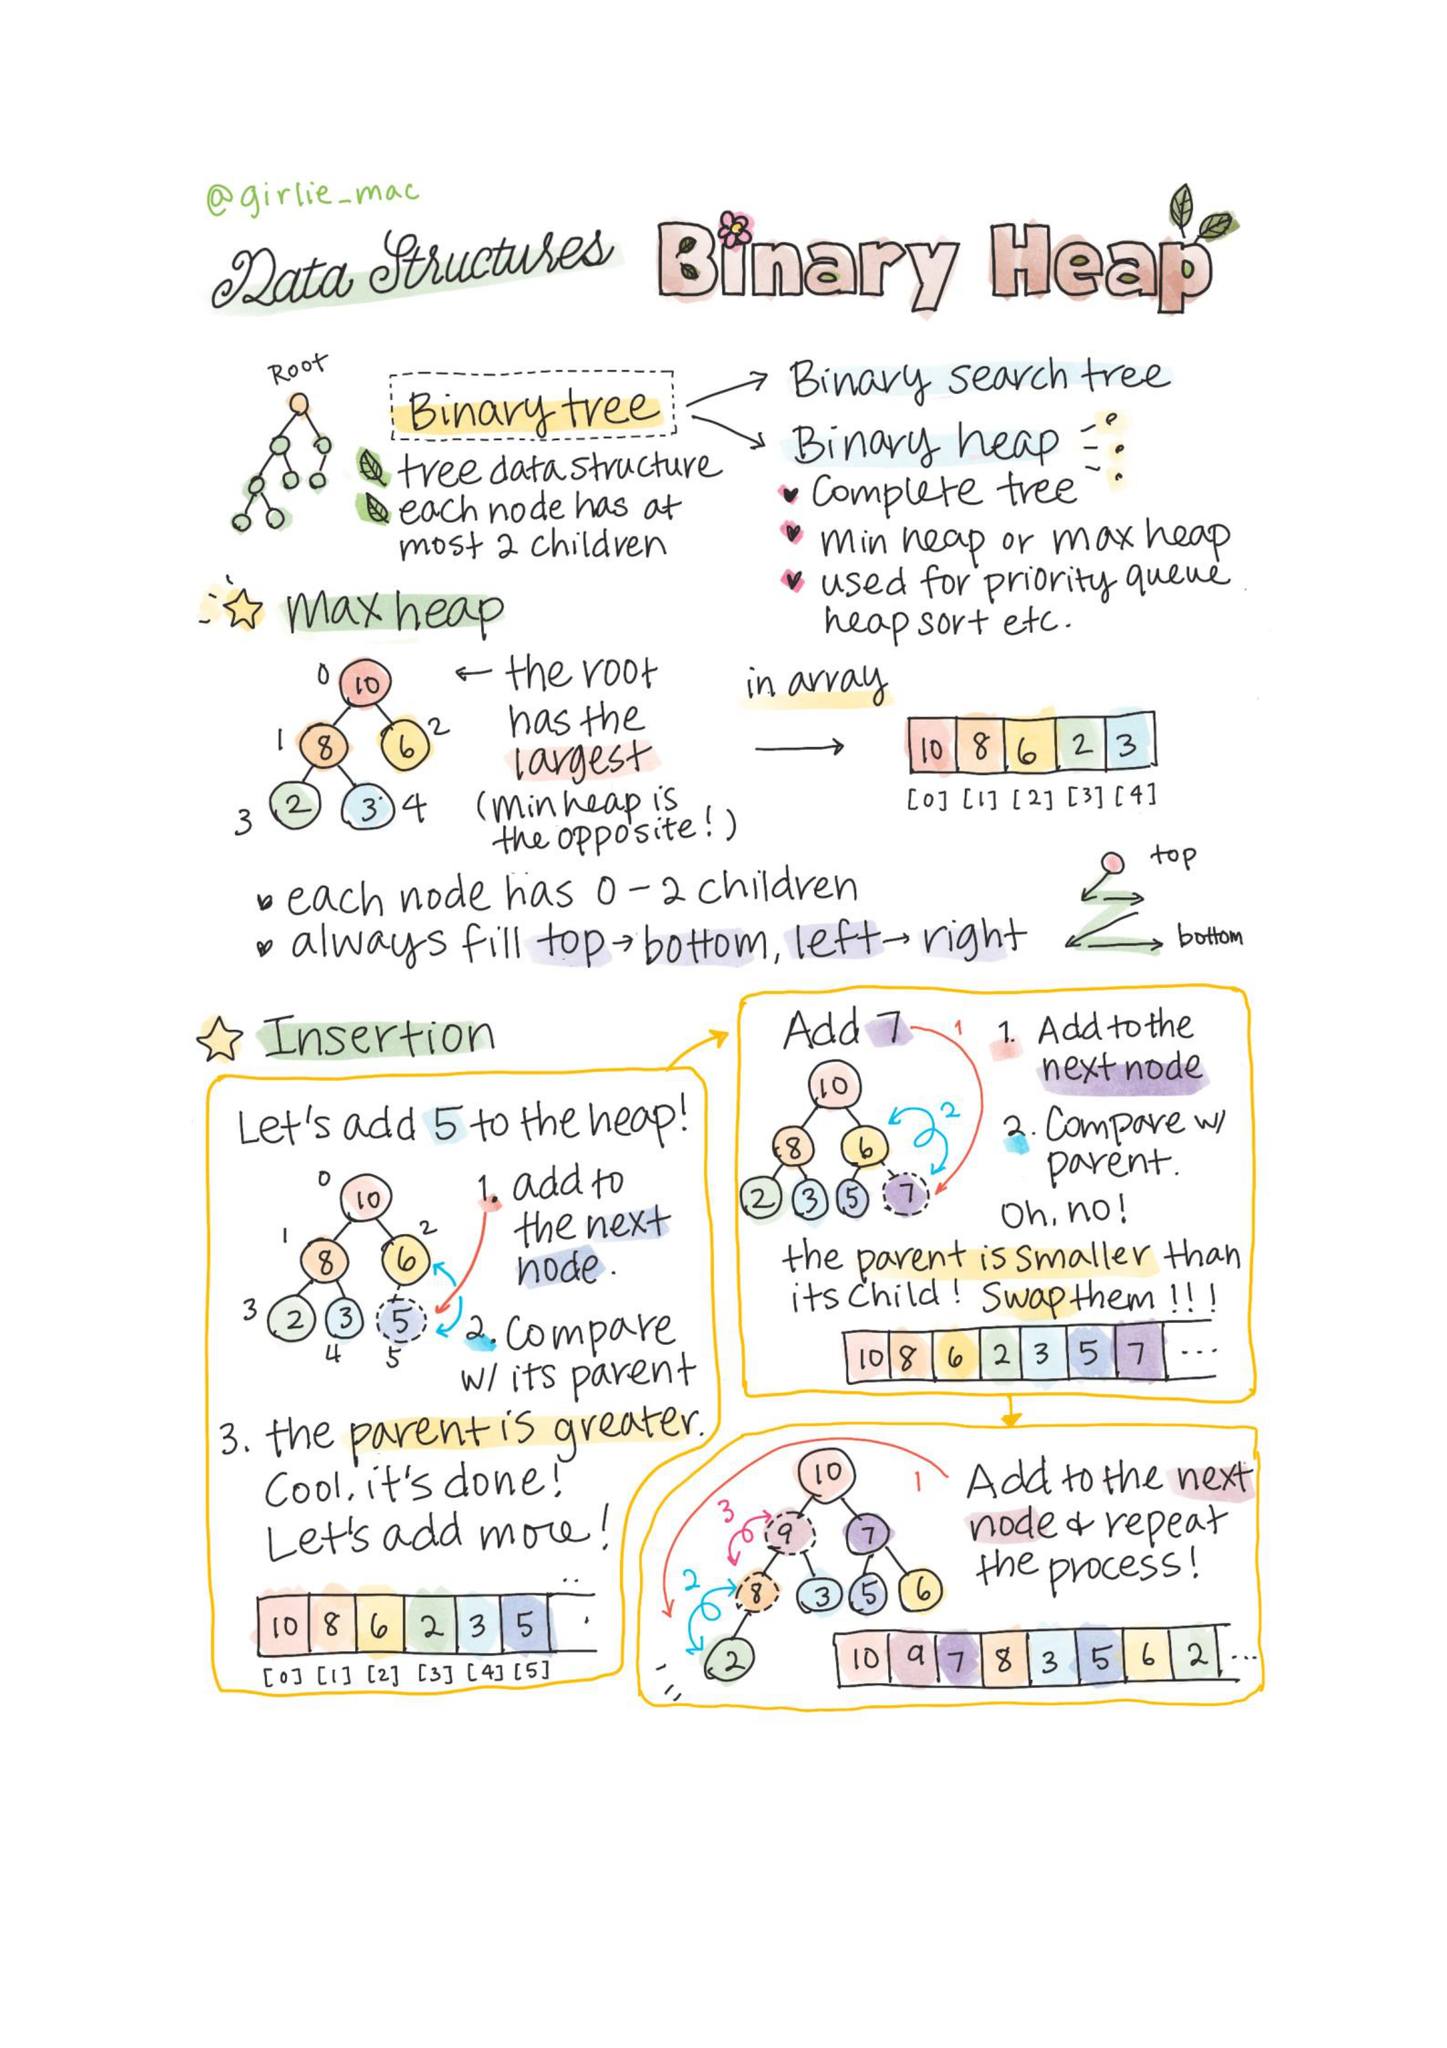 @girlie_mac
Data Structures Binary Heap
Root
Binary tree
tree data structure
each node has at
most 2 children
Binary search tree
Binary heap
Complete tree
min heap or max heap
used for priority queue
heap sort etc.
Max heap
0 10
1 8 6 2
3 2 3 4
← the root
has the
largest
(min heap is
the opposite!)
in array
10 8 6 2 3
[0] [1] [2] [3] [4]
each node has 0-2 children
always fill top→bottom, left→right
top
bottom
Insertion
Let's add 5 to the heap!
0 10
1 8 6 2
3 2 3 5
4 5
1. add to
the next
node.
2. Compare
w/ its parent
3. the parent is greater.
Cool, it's done!
Let's add more!
10 8 6 2 3 5
[0] [1] [2] [3] [4] [5]
Add 7 1
10
8 6 2
2 3 5 7
1. Add to the
next node
2. Compare w/
parent.
Oh, no!
the parent is smaller than
its child! Swap them!!!
10 8 6 2 3 5 7 ...
10 1
3 9 7
2 8 3 5 6
2
Add to the next
node & repeat
the process!
10 9 7 8 3 5 6 2 ...